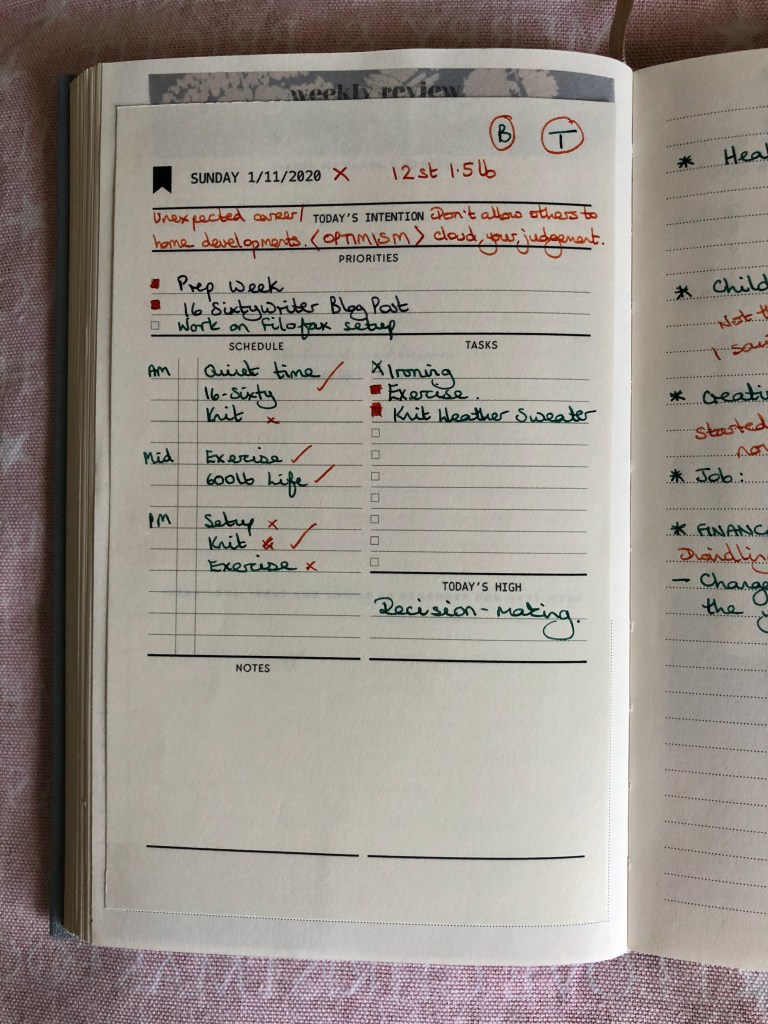 weekly review
B T
SUNDAY 1/11/2020 X 12st 1.5lb
Unexpected career/ TODAY'S INTENTION Don't allow others to
home developments. (OPTIMISM) cloud your judgement.
PRIORITIES
Prep Week
16 SixtyWriter Blog Post
Work on Filofax setup
SCHEDULE TASKS
AM Quiet time ✓ X Ironing
16-Sixty Exercise.
Knit x Knit Weather Sweater
Mid Exercise ✓
600lb Life ✓
PM Setup x
Knit ✓
Exercise x
TODAY'S HIGH
Decision-making.
NOTES
* Heal
* Child
Not th
I sai
* Creativ
started
now
* Job:
* FINANC
Dwindling
- Change
the y